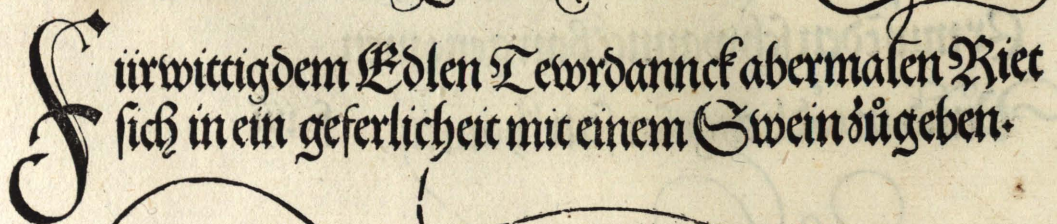 Fürwittig dem Edlen Tewrdannck abermalen Riet
sich in ein geferlicheit mit einem Swein zůgeben.